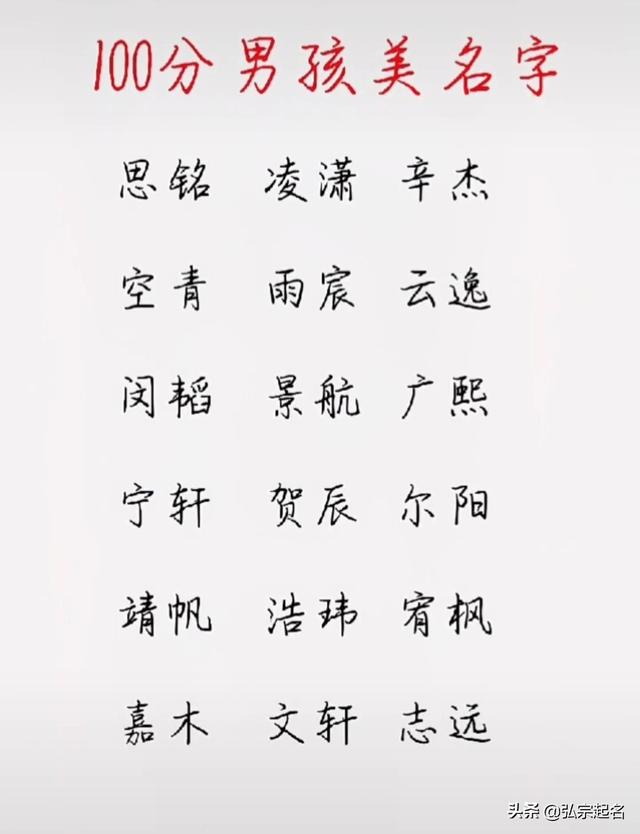 100分男孩美名字
思铭 凌潇 辛杰
空青 雨宸 云逸
闵韬 景航 广熙
宁轩 贺辰 尔阳
靖帆 浩玮 宥枫
嘉木 文轩 志远
头条 @弘宗起名